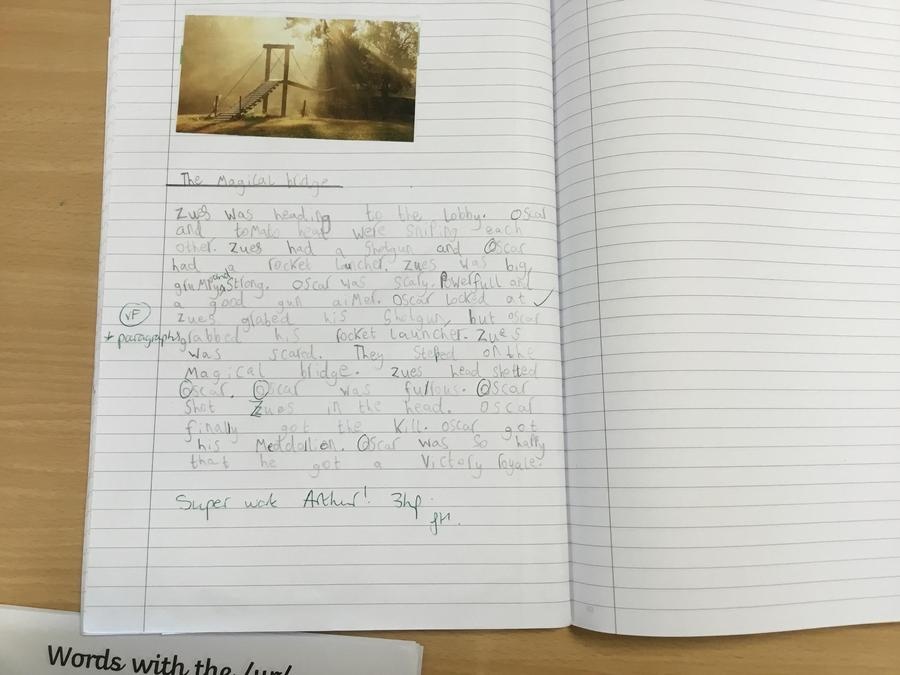 The Magical bridge
Zues was heading to the Lobby. Oscar
and tomato head were sniping each
other. Zues had a Shotgun and Oscar
had a rocket luncher. Zues was big,
grumpy and Strong. Oscar was scary. Powerfull and
a good gun aimer. Oscar locked at
VF
Zues grabed his Shotgun, but oscar
+ paragraphs
grabbed his rocket launcher. Zues
was scared. They steped on the
Magical bridge. Zues head shetted
Oscar. Oscar was furious. Oscar
Shot Zues in the head. Oscar
finally got the Kill. Oscar got
his Meddallien. Oscar was so happy
that he got a Victory royale.
Super work Arthur! 3hp.
Words with the /ur/